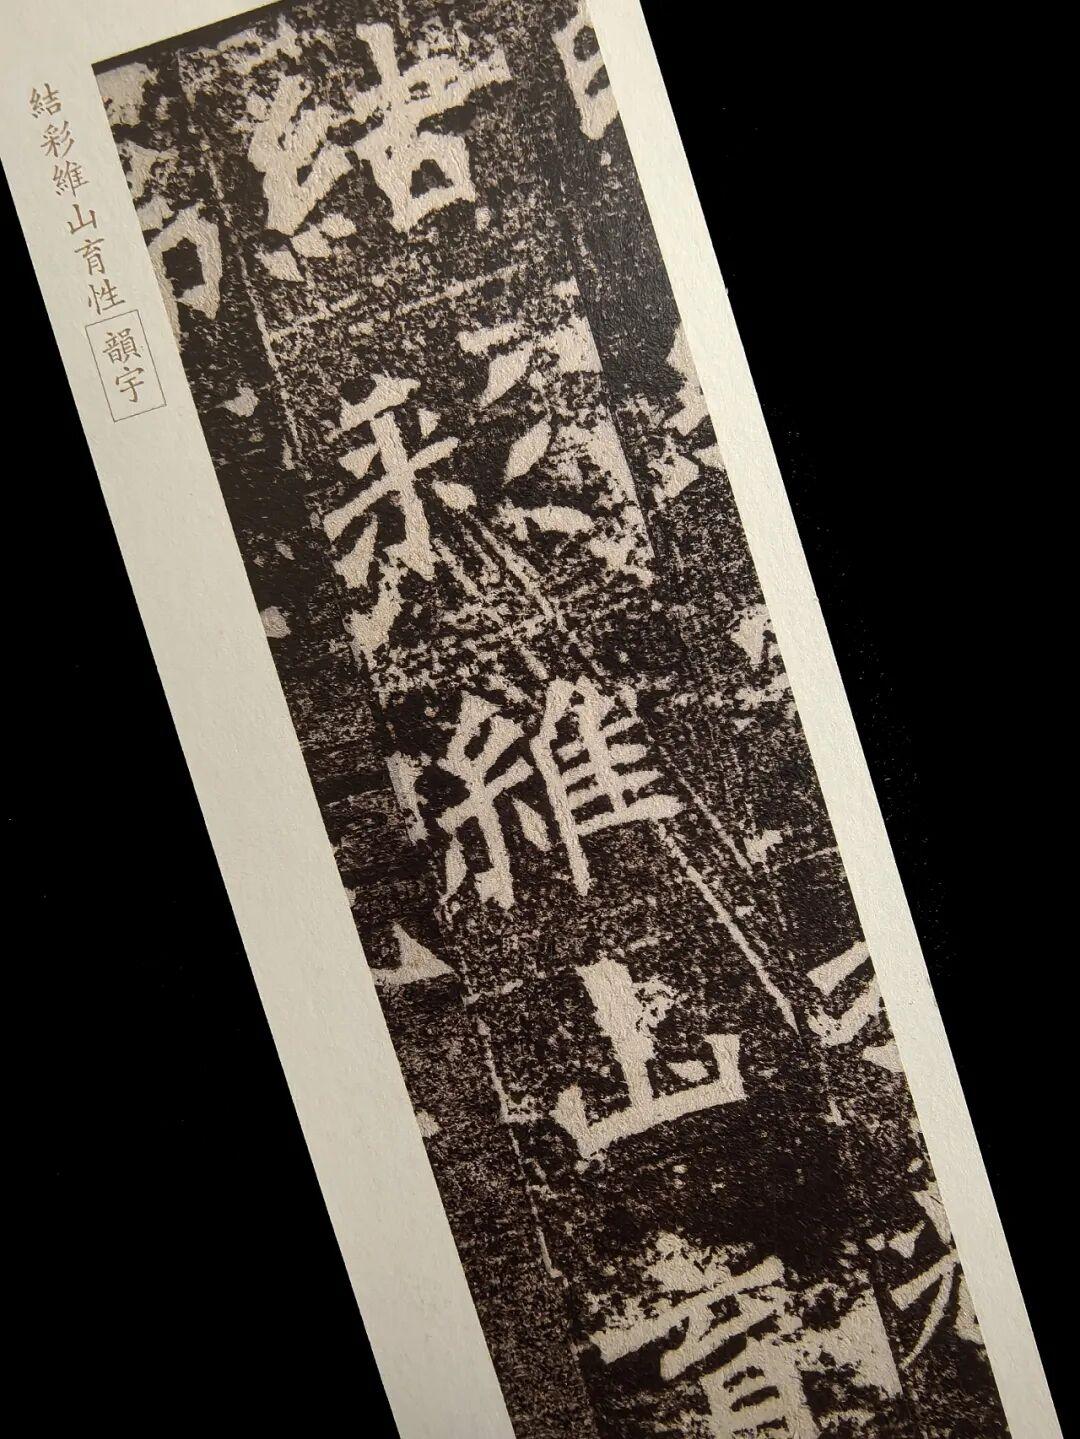 結彩維山育性韻宇
結彩維山育